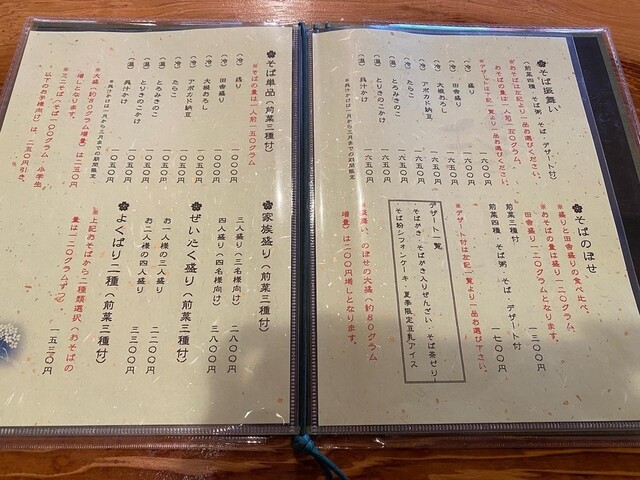 そば振舞い
(前菜四種・そば粥・そば・デザート付)
※おそばは左記より一品お選びください。
おそばの量は一人前一五〇グラム。
※デザートは下記一覧より一品お選びください。
(冷) 盛り 一六〇〇円
(冷) 田舎盛り 一六〇〇円
(冷) 大根おろし 一六五〇円
(冷) アボカド納豆 一六五〇円
(冷) たらこ 一六五〇円
(温) とろみきのこ 一六五〇円
(温) とりきのこかけ 一六五〇円
(温) 呉汁かけ 一六五〇円
※呉汁かけは一月から三月までの期間限定
そばのぼせ
※盛りと田舎盛りの食べ比べ。
※おそばの量は盛り一二〇グラム、
田舎盛り一二〇グラムとなります。
前菜三種付 一三〇〇円
前菜四種・そば粥・そば・デザート付 一七〇〇円
※デザート付は左記一覧より一品お選び下さい。
デザート一覧
そばがき・そばがき入りぜんざい・そば茶ゼリー
そば粉シフォンケーキ・夏季限定豆乳アイス
※振舞い、のぼせの大盛(約80グラム
増量)は二〇〇円増しとなります。
そば単品(前菜三種付)
※そばの量は一人前一五〇グラム
(冷) 盛り 一〇〇〇円
(冷) 田舎盛り 一〇〇〇円
(冷) 大根おろし 一〇五〇円
(冷) アボカド納豆 一〇五〇円
(冷) たらこ 一〇五〇円
(温) とろみきのこ 一〇五〇円
(温) とりきのこかけ 一〇五〇円
(温) 呉汁かけ 一〇五〇円
※呉汁かけは一月から三月までの期間限定
※大盛(約80グラム増量)は二五〇円
増しとなります。
※ミニそば(そば一〇〇グラム・小学生
以下のお子様向け)は、二五〇円引き。
家族盛り(前菜三種付)
三人盛り(三名様向け) 二八〇〇円
四人盛り(四名様向け) 三八〇〇円
ぜいたく盛り(前菜三種付)
お一人様の三人盛り 二二〇〇円
お二人様の四人盛り 三三〇〇円
よくばり二種(前菜三種付)
※上記おそばから二種類選択(おそばの
量は一二〇グラムずつ) 一五三〇円